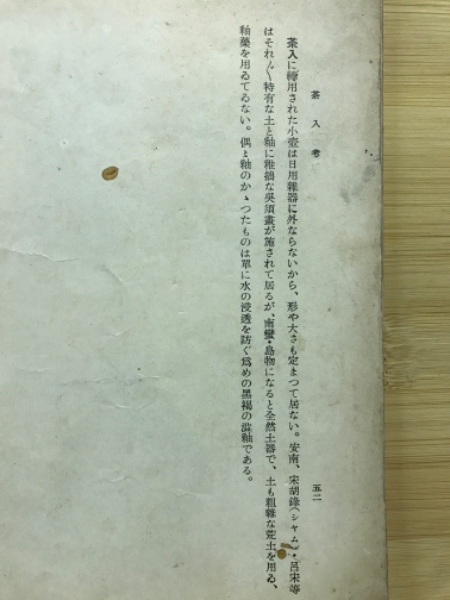 茶入考
五二
茶入に轉用された小壺は日用雜器に外ならないから、形や大さも定まつて居ない。安南、宋胡錄(シヤム)・呂宋等
はそれ〴〵特有な土と釉に稚拙な吳須畫が施されて居るが、南蠻・島物になると全然土器で、土も粗雜な荒土を用ゐ、
釉藥を用ゐてゐない。偶〻釉のかゝつたものは單に水の浸透を防ぐ爲めの黑褐の澁釉である。